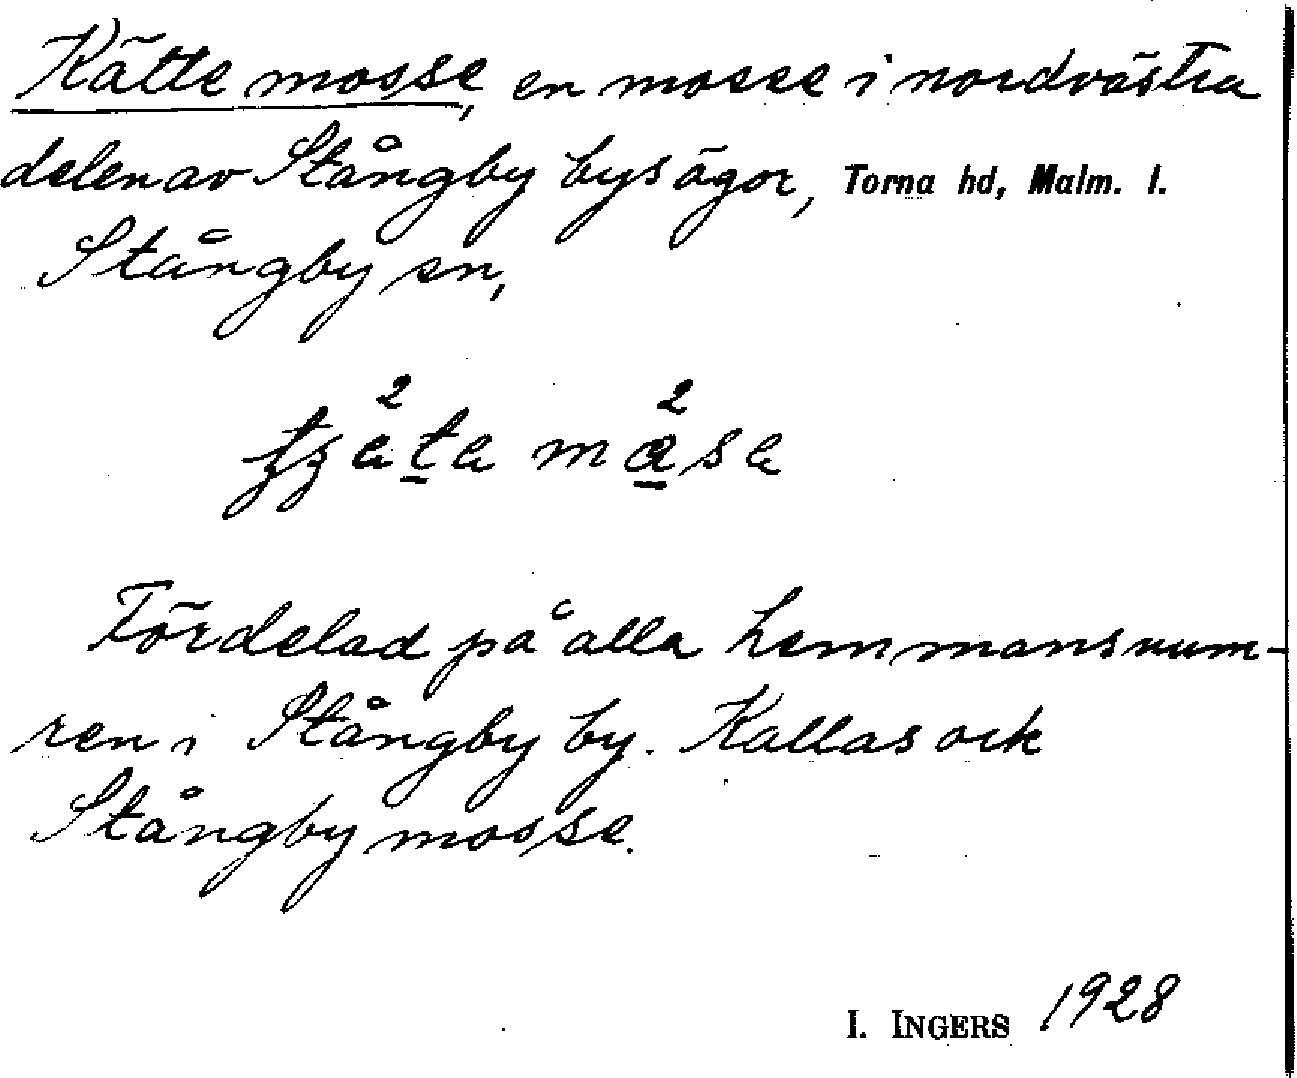 Kätte mosse, en mosse i nordvästra
delen av Stångby bys ägor, Torna hd, Malm. l.
Stångby sn,
Fördelad på alla hemmansnum-
ren i Stångby by. Kallas ock
Stångby mosse.
I. INGERS 1928